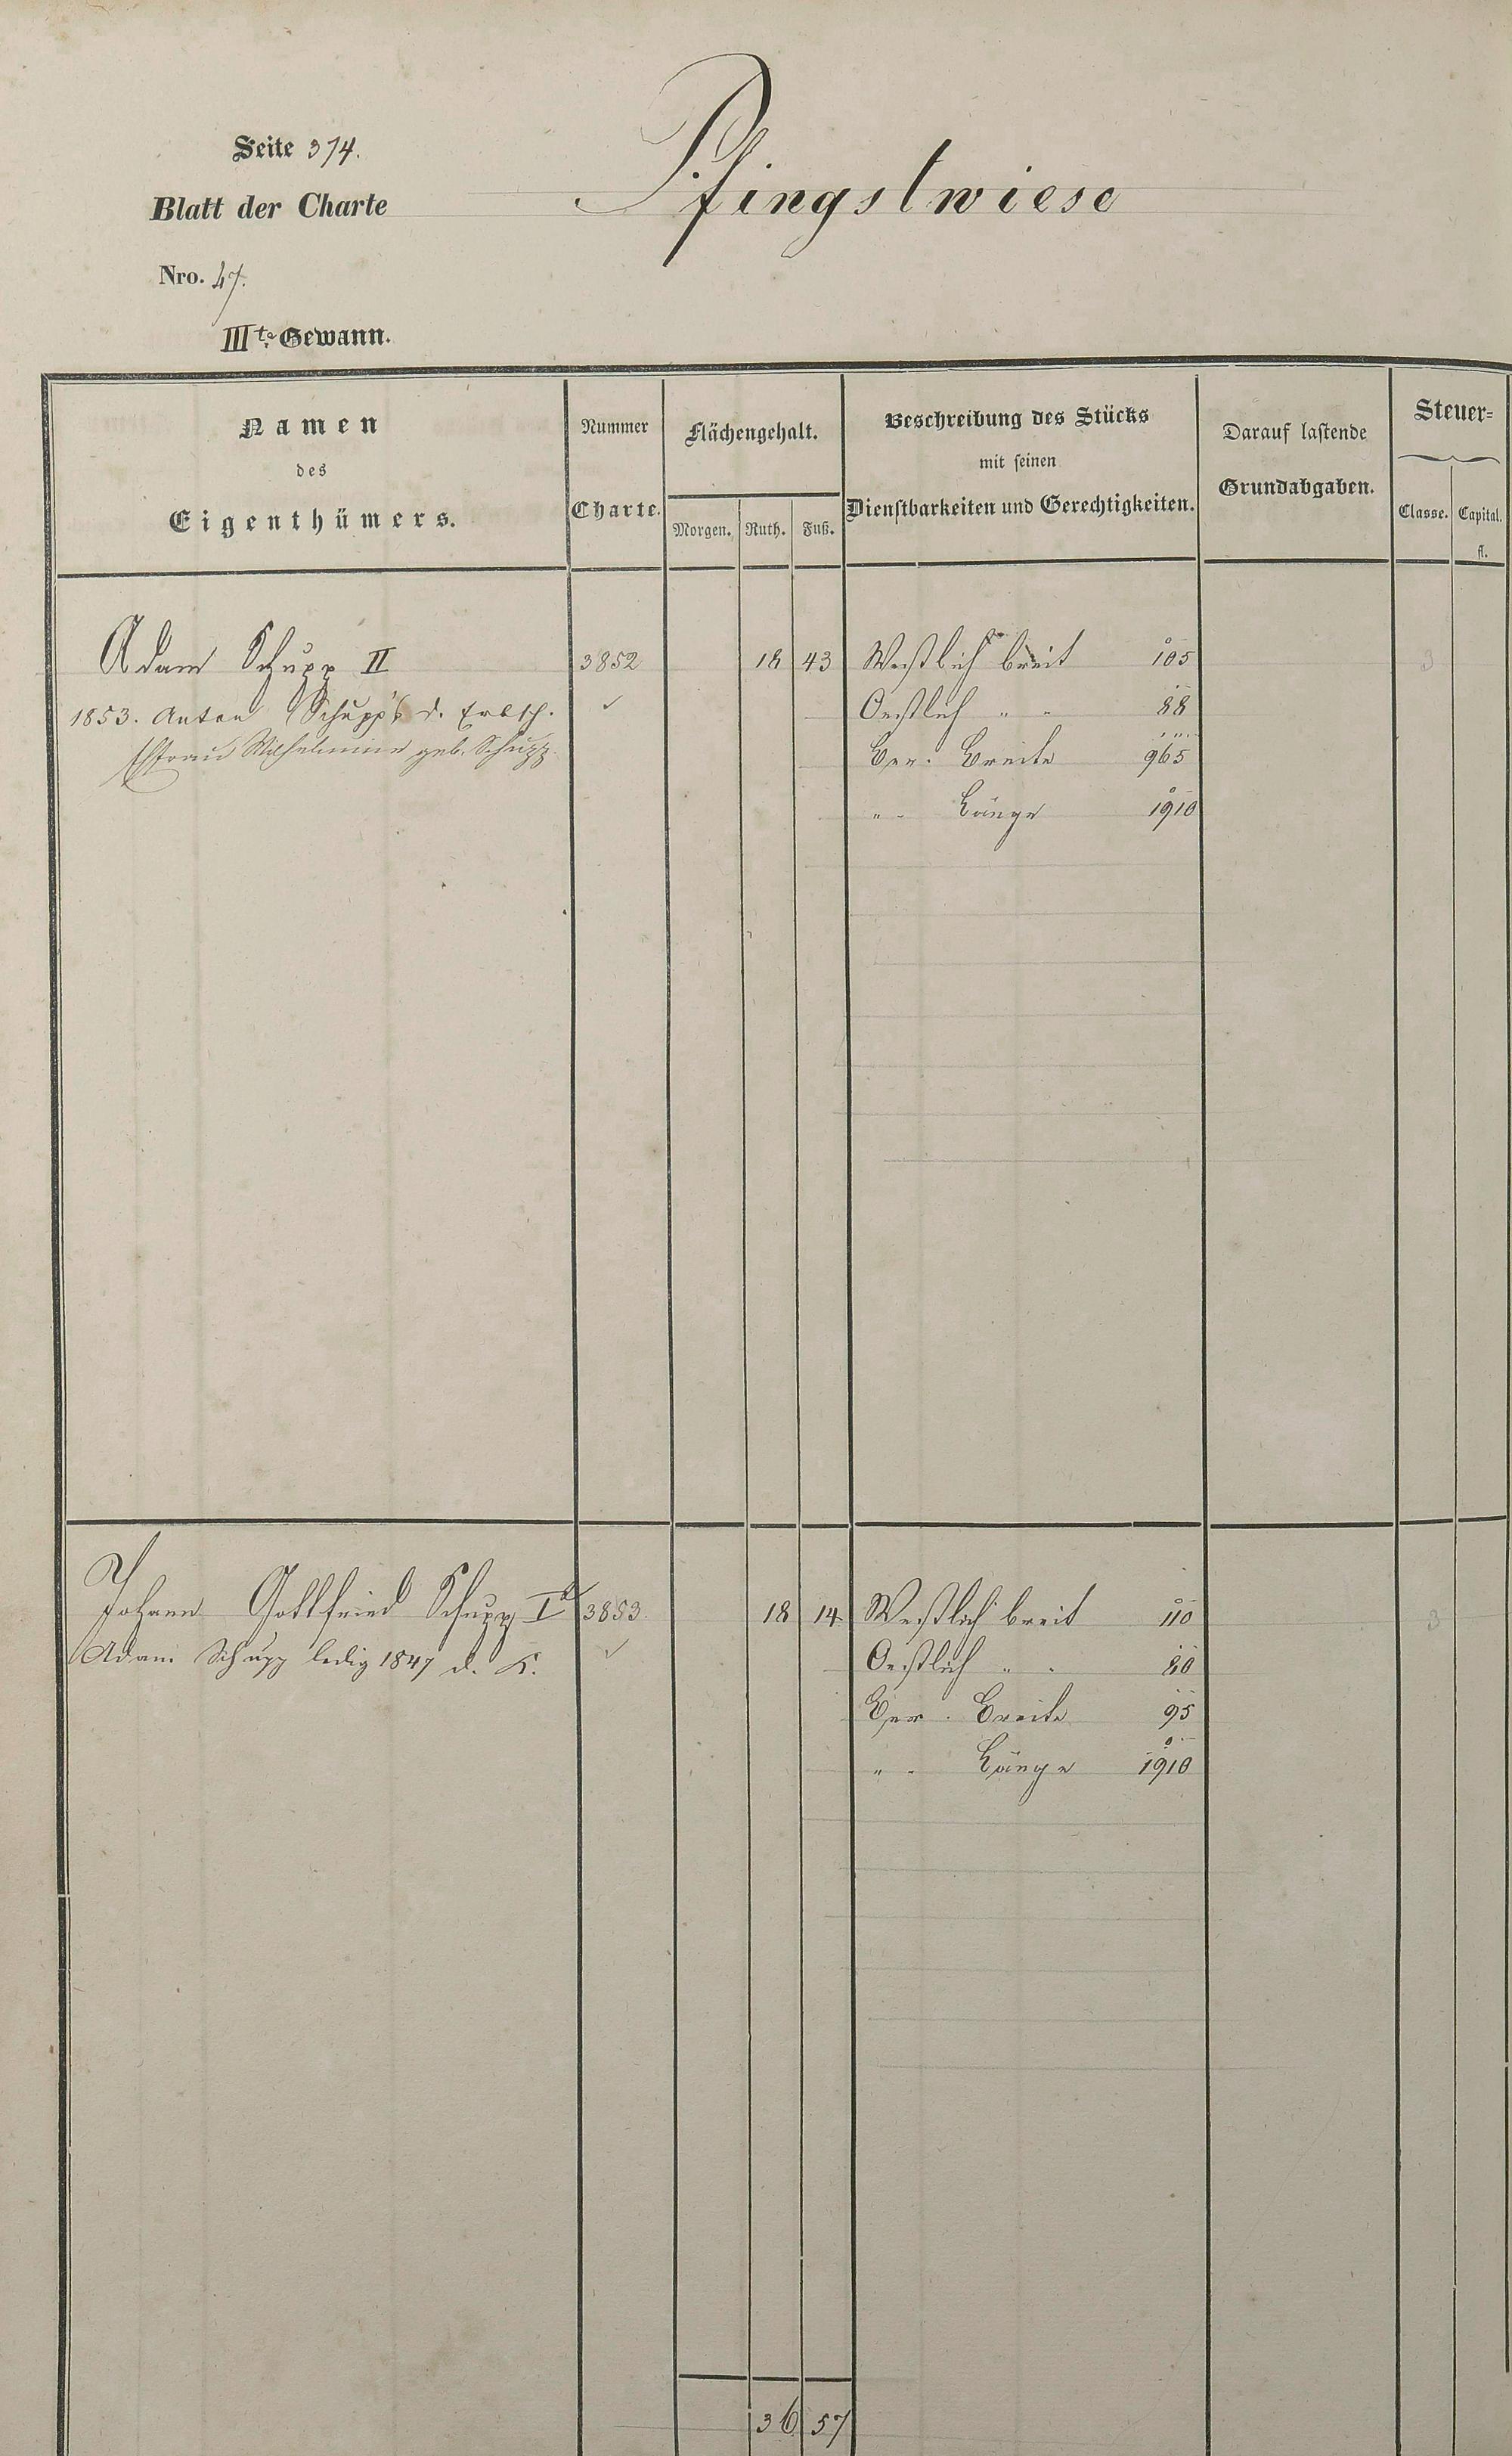 Seite 374.
Blatt der Charte
Nro. 47.
IIIte Gewann.
Pfingstwiese
Namen
des
Eigenthümers.
Nummer
Charte.
Flächengehalt.
Morgen. Ruth. Fuß.
Beschreibung des Stücks
mit seinen
Dienstbarkeiten und Gerechtigkeiten.
Darauf lastende
Grundabgaben.
Steuer=
Classe. Capital.
fl.
Adam Schupp II 3852 18 43 Westlich breit 105 3
1853. Anton Schupp's d. Erbsch. ✓ Oestlich " " 88
Ehefrau Wilhelmine geb. Schupp. Ver. Breite 965
" " Länge 1910
Johann Gottfried Schupp I 3853. 18 14 Westlich breit 110 3
Adam Schupp ledig 1847 d. K. ✓ Oestlich " " 80
Ver. Breite 95
" " Länge 1910
36 57